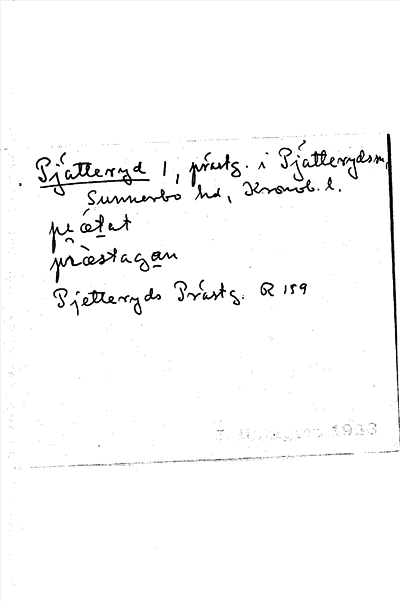 Pjätteryd 1, prästg. i Pjätterydsn,
Sunnerbo hd, Kronob. l.
pi̯ætat
præstagan
Pjetteryds Prästg. R 159
1933